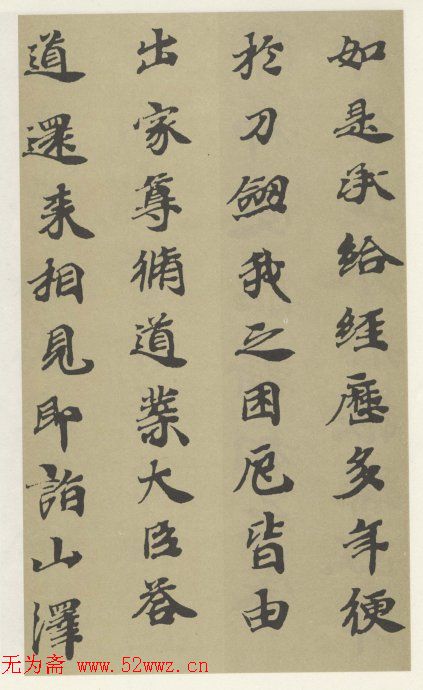 如是承給經歷多年便
於刀劒我之困厄皆由
出家尊脩道業大臣答
道還来相見即詣山澤
无为斋 www.52wwz.cn